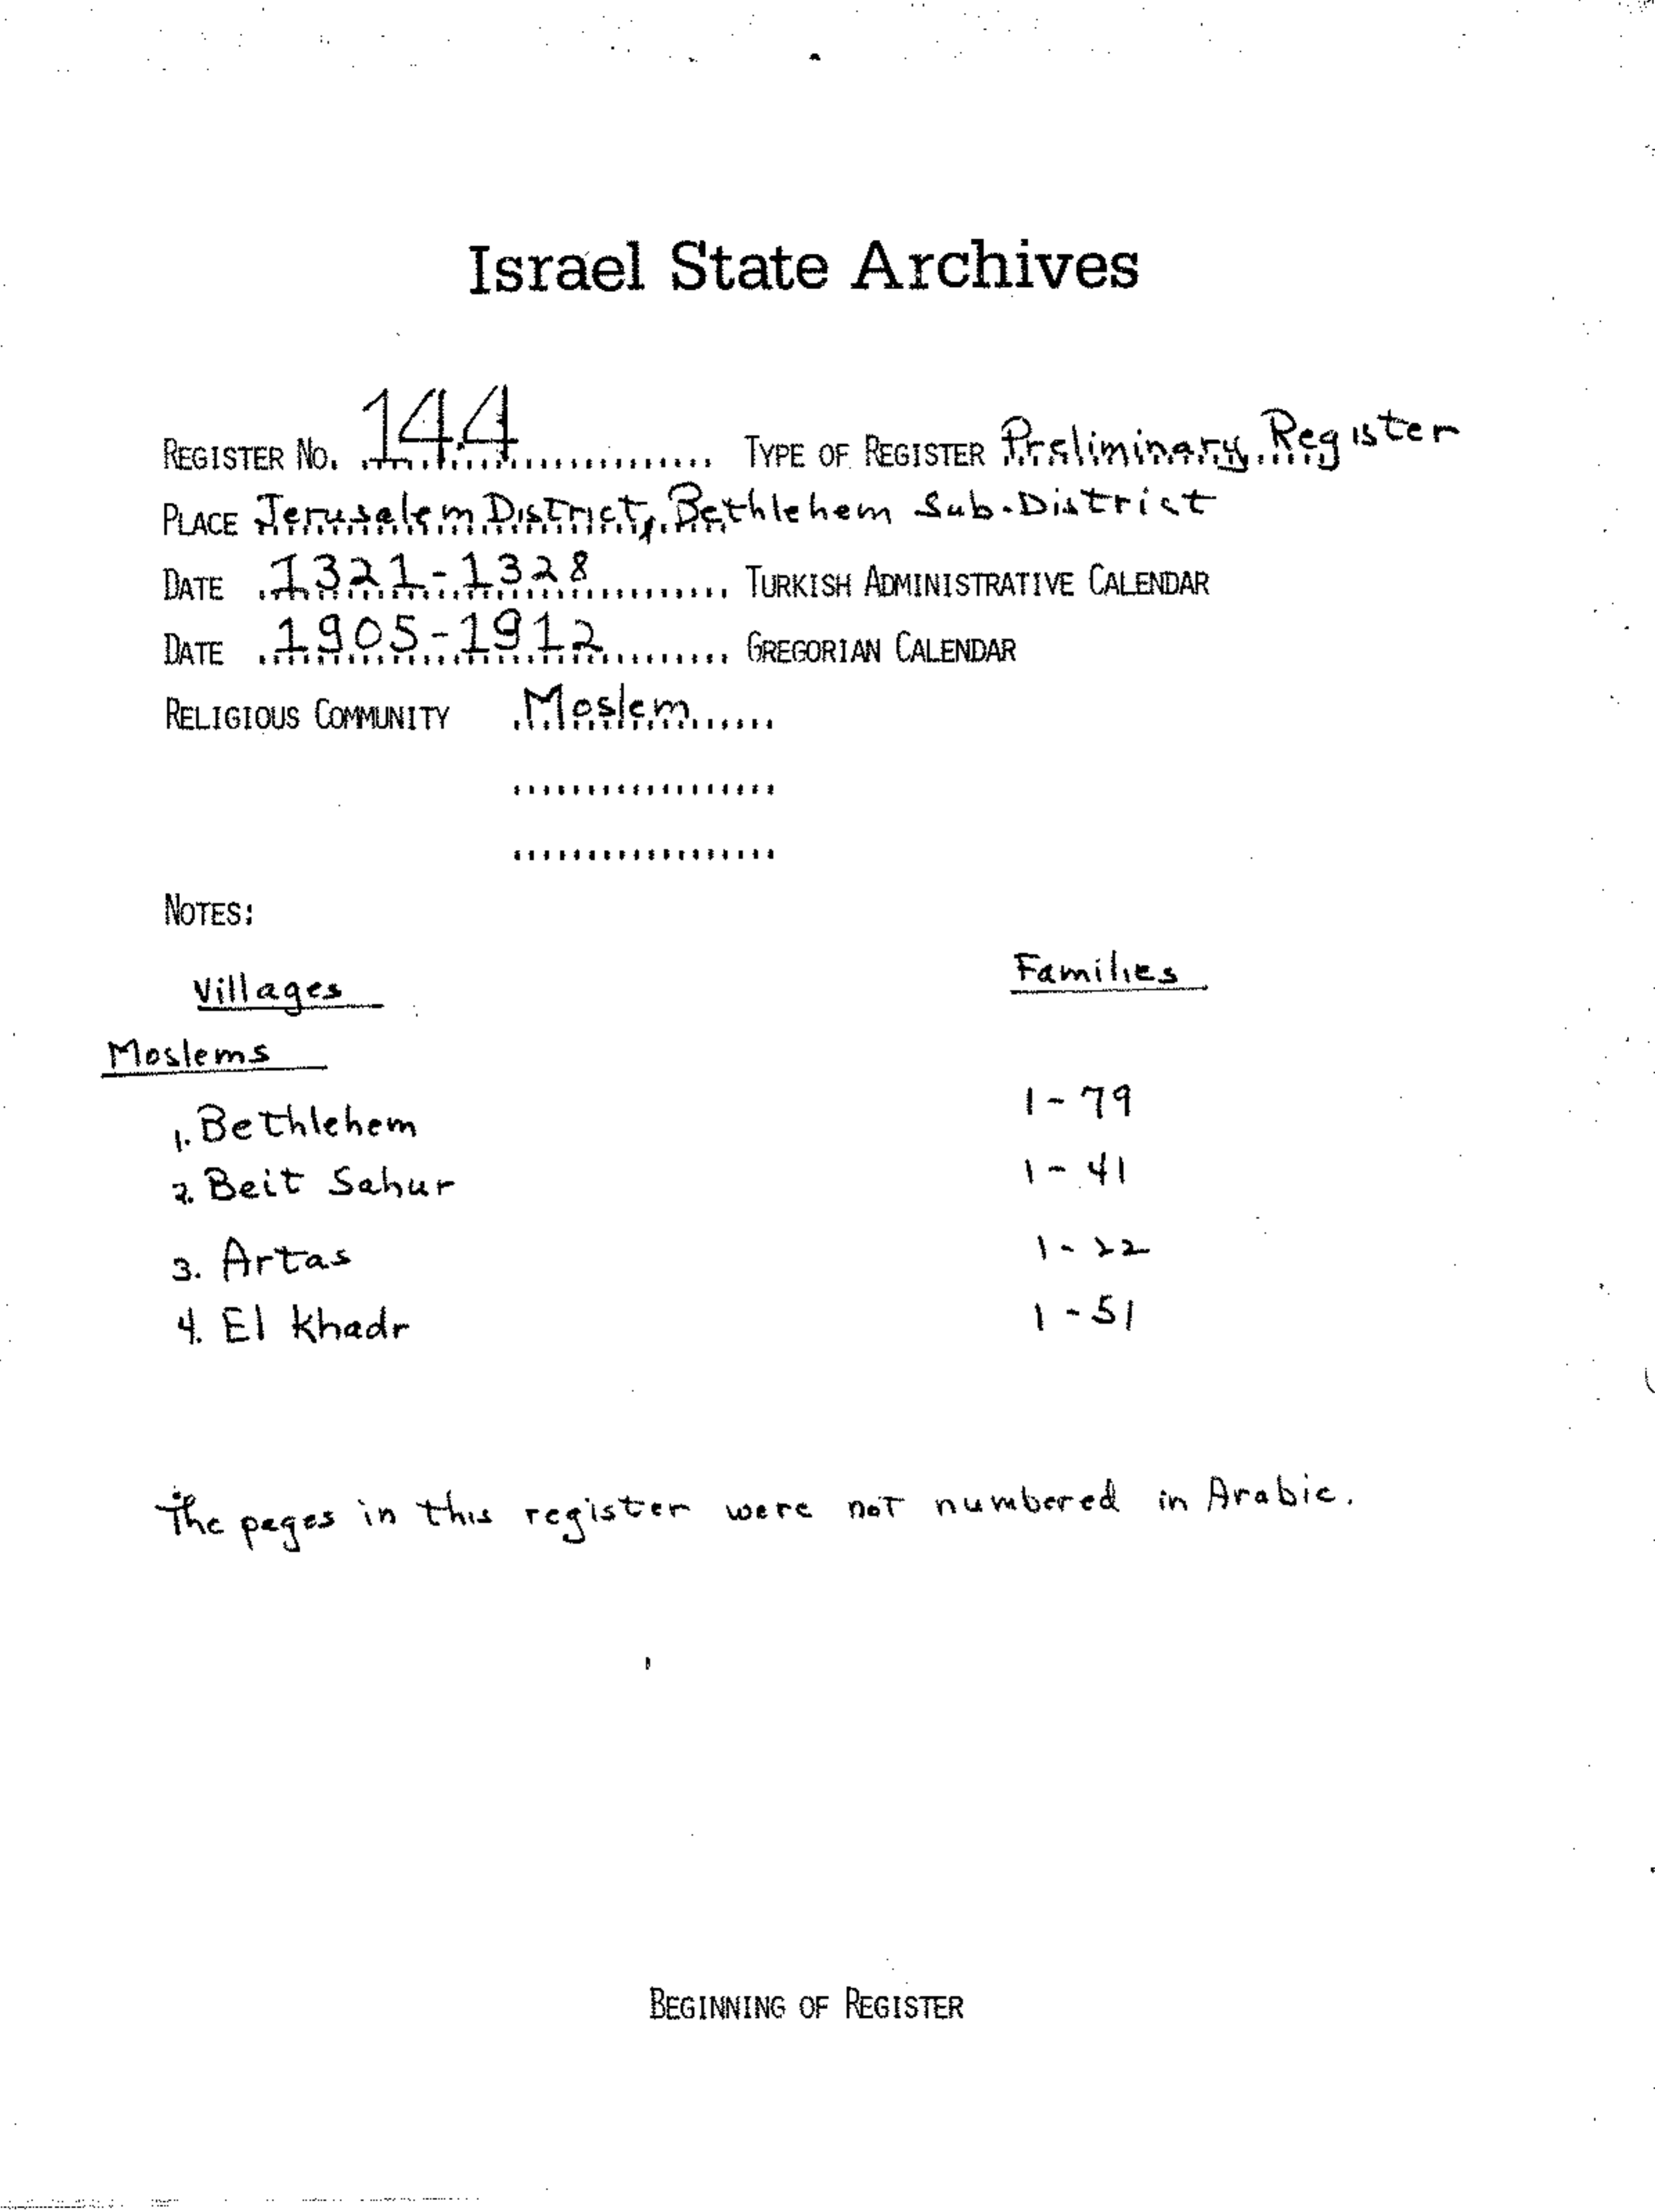 Israel State Archives
REGISTER No. 144 TYPE OF REGISTER Preliminary Register
PLACE Jerusalem District, Bethlehem Sub-District
DATE 1321-1328 TURKISH ADMINISTRATIVE CALENDAR
DATE 1905-1912 GREGORIAN CALENDAR
RELIGIOUS COMMUNITY Moslem
NOTES:
Villages Families
Moslems
1. Bethlehem 1-79
2. Beit Sahur 1-41
3. Artas 1-22
4. El Khadr 1-51
The pages in this register were not numbered in Arabic.
BEGINNING OF REGISTER